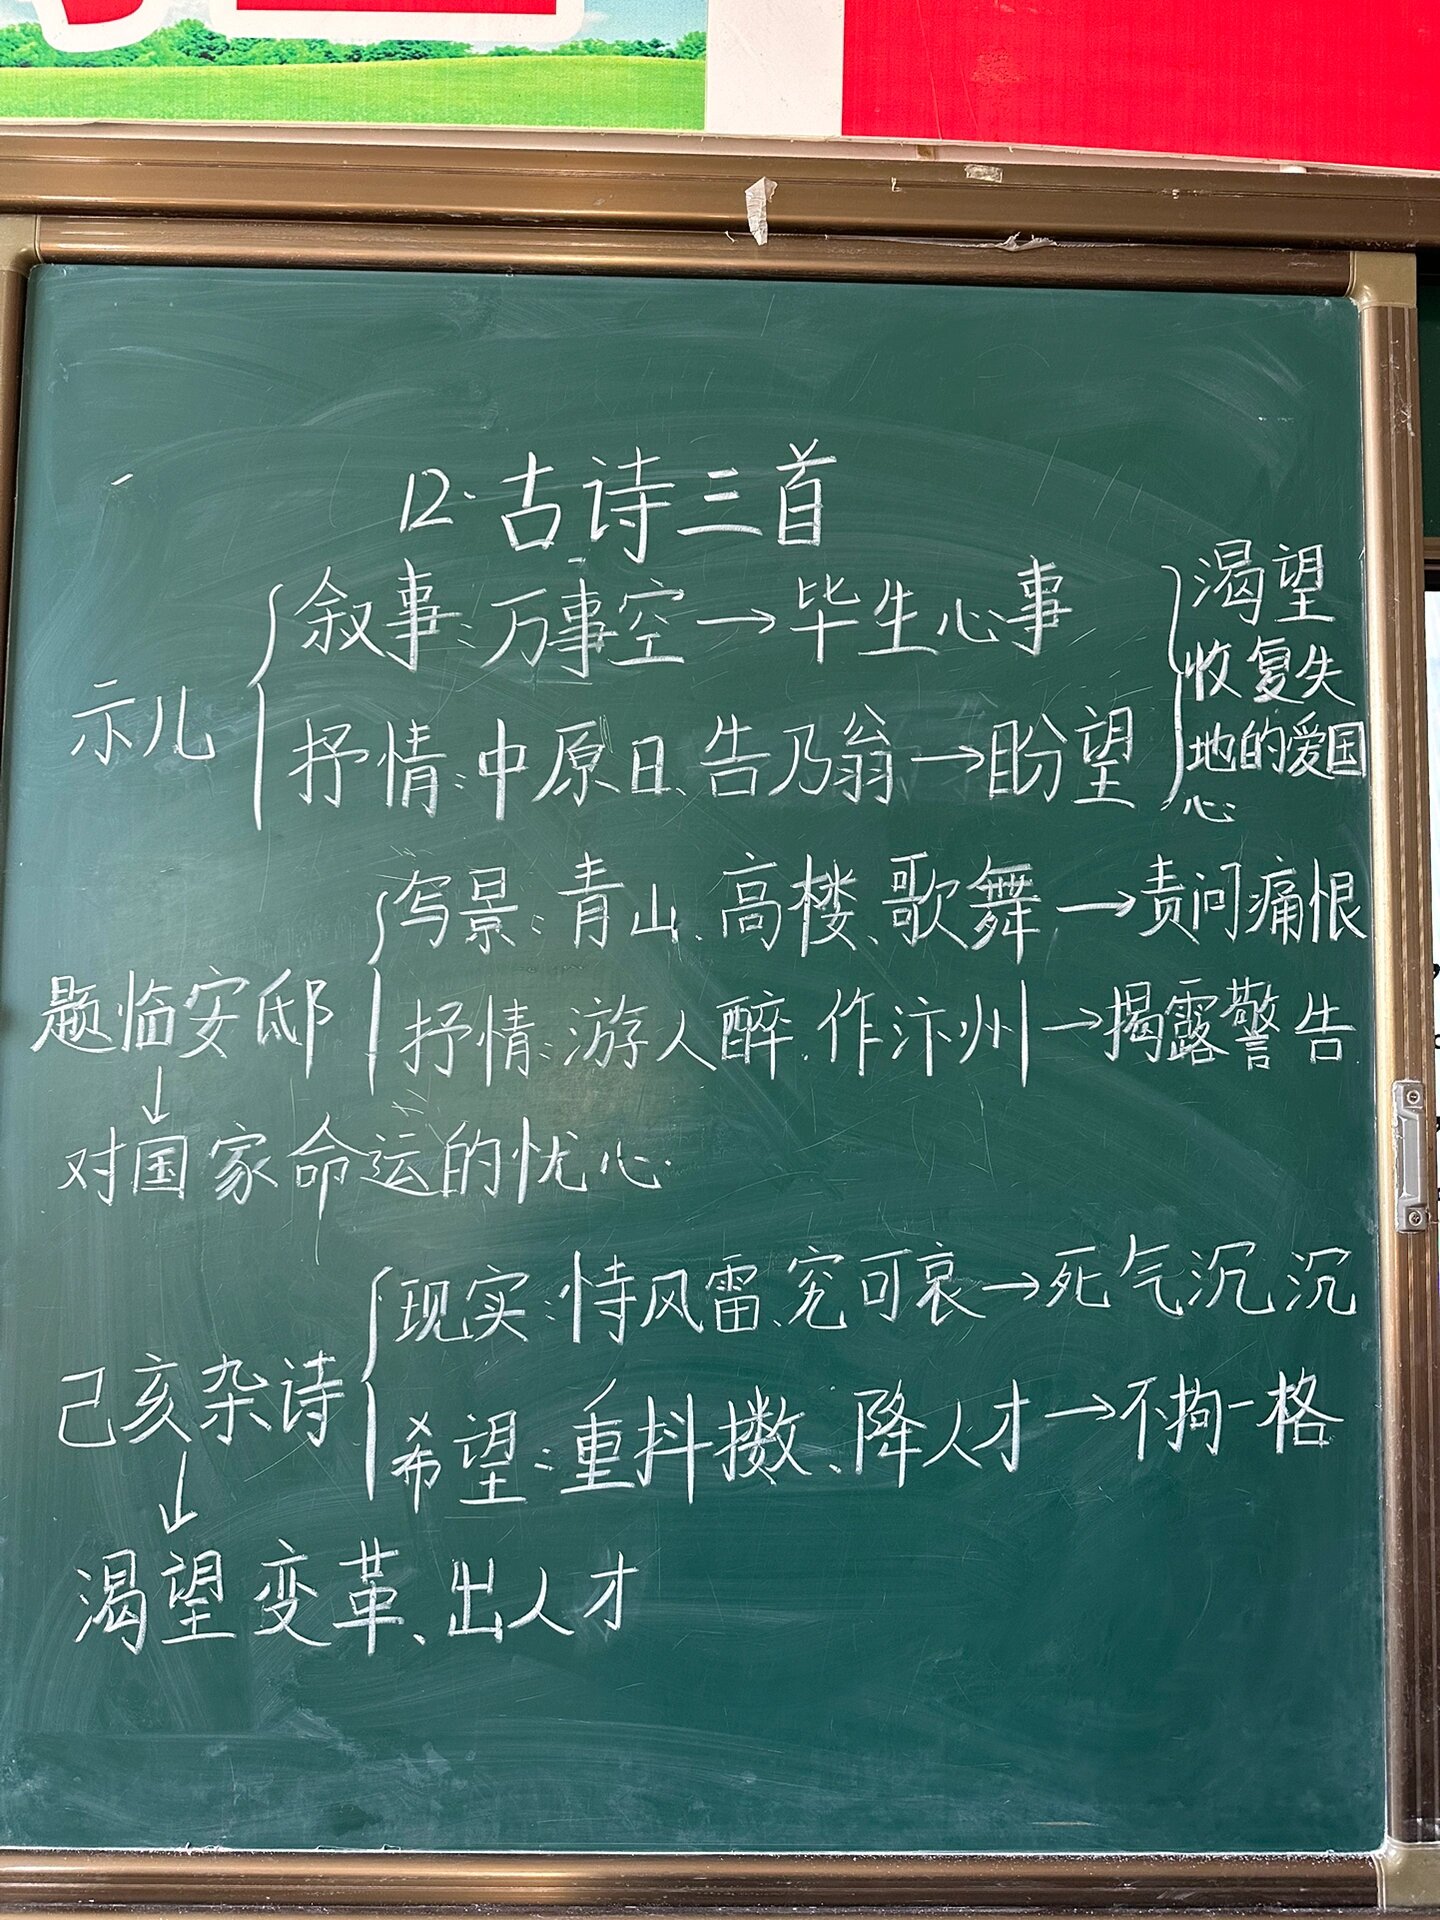 12.古诗三首
叙事:万事空→毕生心事
渴望
收复失
地的爱国
心
示儿
抒情:中原日、告乃翁→盼望
写景:青山、高楼、歌舞→责问痛恨
题临安邸
抒情:游人醉、作汴州→揭露警告
↓
对国家命运的忧心.
现实:恃风雷、究可哀→死气沉沉
己亥杂诗
希望:重抖擞、降人才→不拘一格
↓
渴望变革、出人才